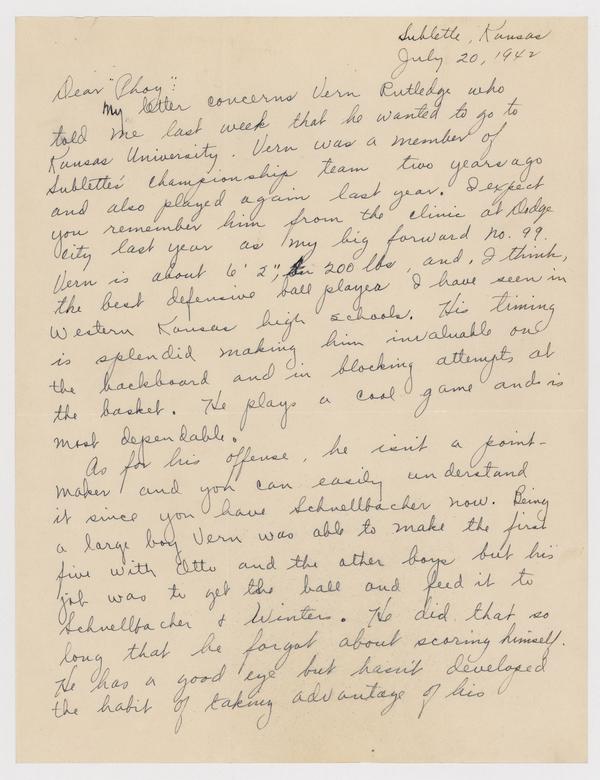 Sublette, Kansas
July 20, 1942
Dear "Phog":
My letter concerns Vern Rutledge who
told me last week that he wanted to go to
Kansas University. Vern was a member of
Sublettes' championship team two years ago
and also played again last year. I expect
you remember him from the clinic at Dodge
City last year as my big forward No. 99.
Vern is about 6' 2", 200 lbs, and, I think,
the best defensive ball player I have seen in
Western Kansas high schools. His timing
is splendid making him invaluable on
the backboard and in blocking attempts at
the basket. He plays a cool game and is
most dependable.
As for his offense, he isn't a point-
maker and you can easily understand
it since you have Schnellbacher now. Being
a large boy Vern was able to make the first
five with Otto and the other boys but his
job was to get the ball and feed it to
Schnellbacher & Winters. He did that so
long that he forgot about scoring himself.
He has a good eye but hasn't developed
the habit of taking advantage of his